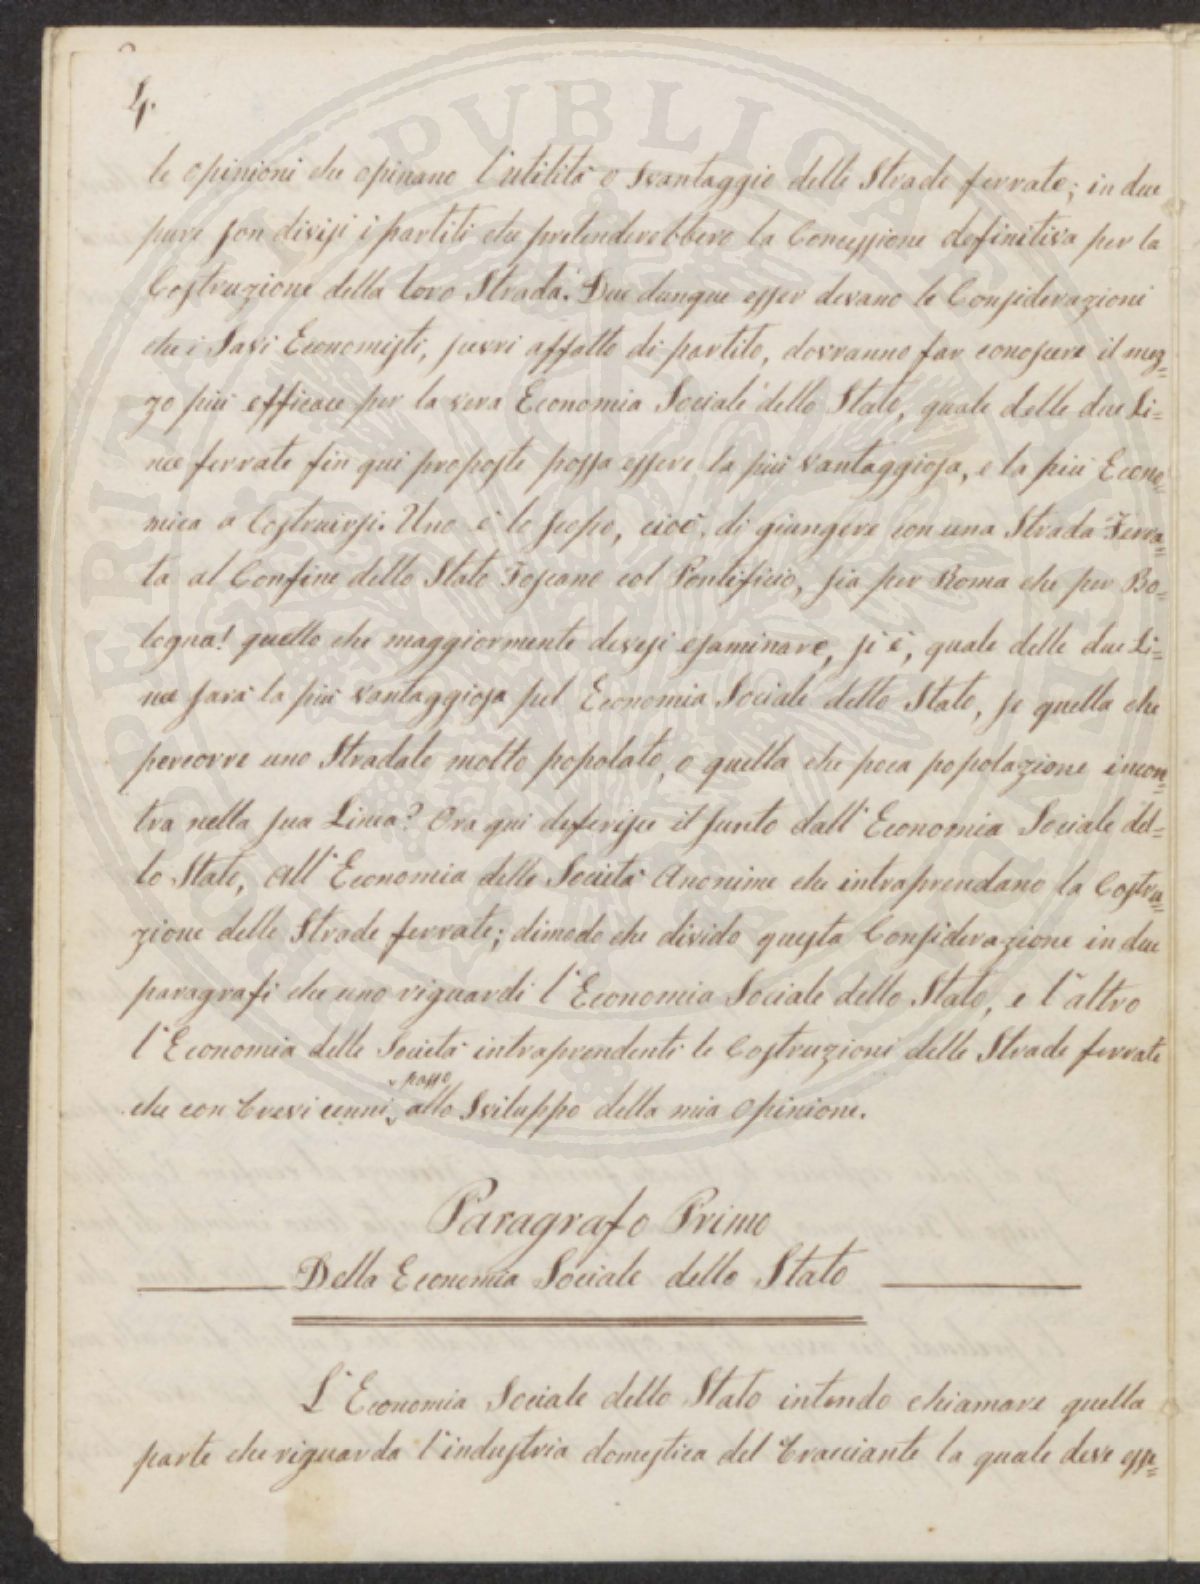 4.
le opinioni che opinano l'utilità o svantaggio delle Strade ferrate; in due
pure son divisi i partiti che pretenderebbero la Concessione definitiva per la
Costruzione della loro Strada. Due dunque esser devano le Considerazioni
che i Savi Economisti, scevri affatto di partito, dovranno far conoscere il mez=
zo più efficace per la vera Economia Sociale dello Stato, quale delle due Li=
nee ferrate fin qui proposte possa essere la più vantaggiosa, e la più Econo=
mica a Costruirsi. Uno è lo scopo, cioè, di giungere con una Strada Ferra=
ta al Confine dello Stato Toscano col Pontificio, sia per Roma che per Bo=
logna! quello che maggiormente devesi esaminare, si è, quale delle due Li=
nee sarà la più vantaggiosa pel Economia Sociale dello Stato, se quella che
percorre uno Stradale molto popolato, o quella che poca popolazione incon=
tra nella sua Linea? Ora qui deferisce il punto dall'Economia Sociale del=
lo Stato, all'Economia delle Società Anonime che intraprendano la Costru=
zione delle Strade ferrate; dimodo che divido questa Considerazione in due
paragrafi che uno riguardi l'Economia Sociale dello Stato, e l'altro
l'Economia delle Società intraprendenti le Costruzioni delle Strade ferrate
passo
che con brevi cenni, allo Sviluppo della mia opinione.
Paragrafo Primo
Della Economia Sociale dello Stato
L'Economia Sociale dello Stato intendo chiamare quella
parte che riguarda l'industria domestica del bracciante la quale deve esse=
PVBLICAE